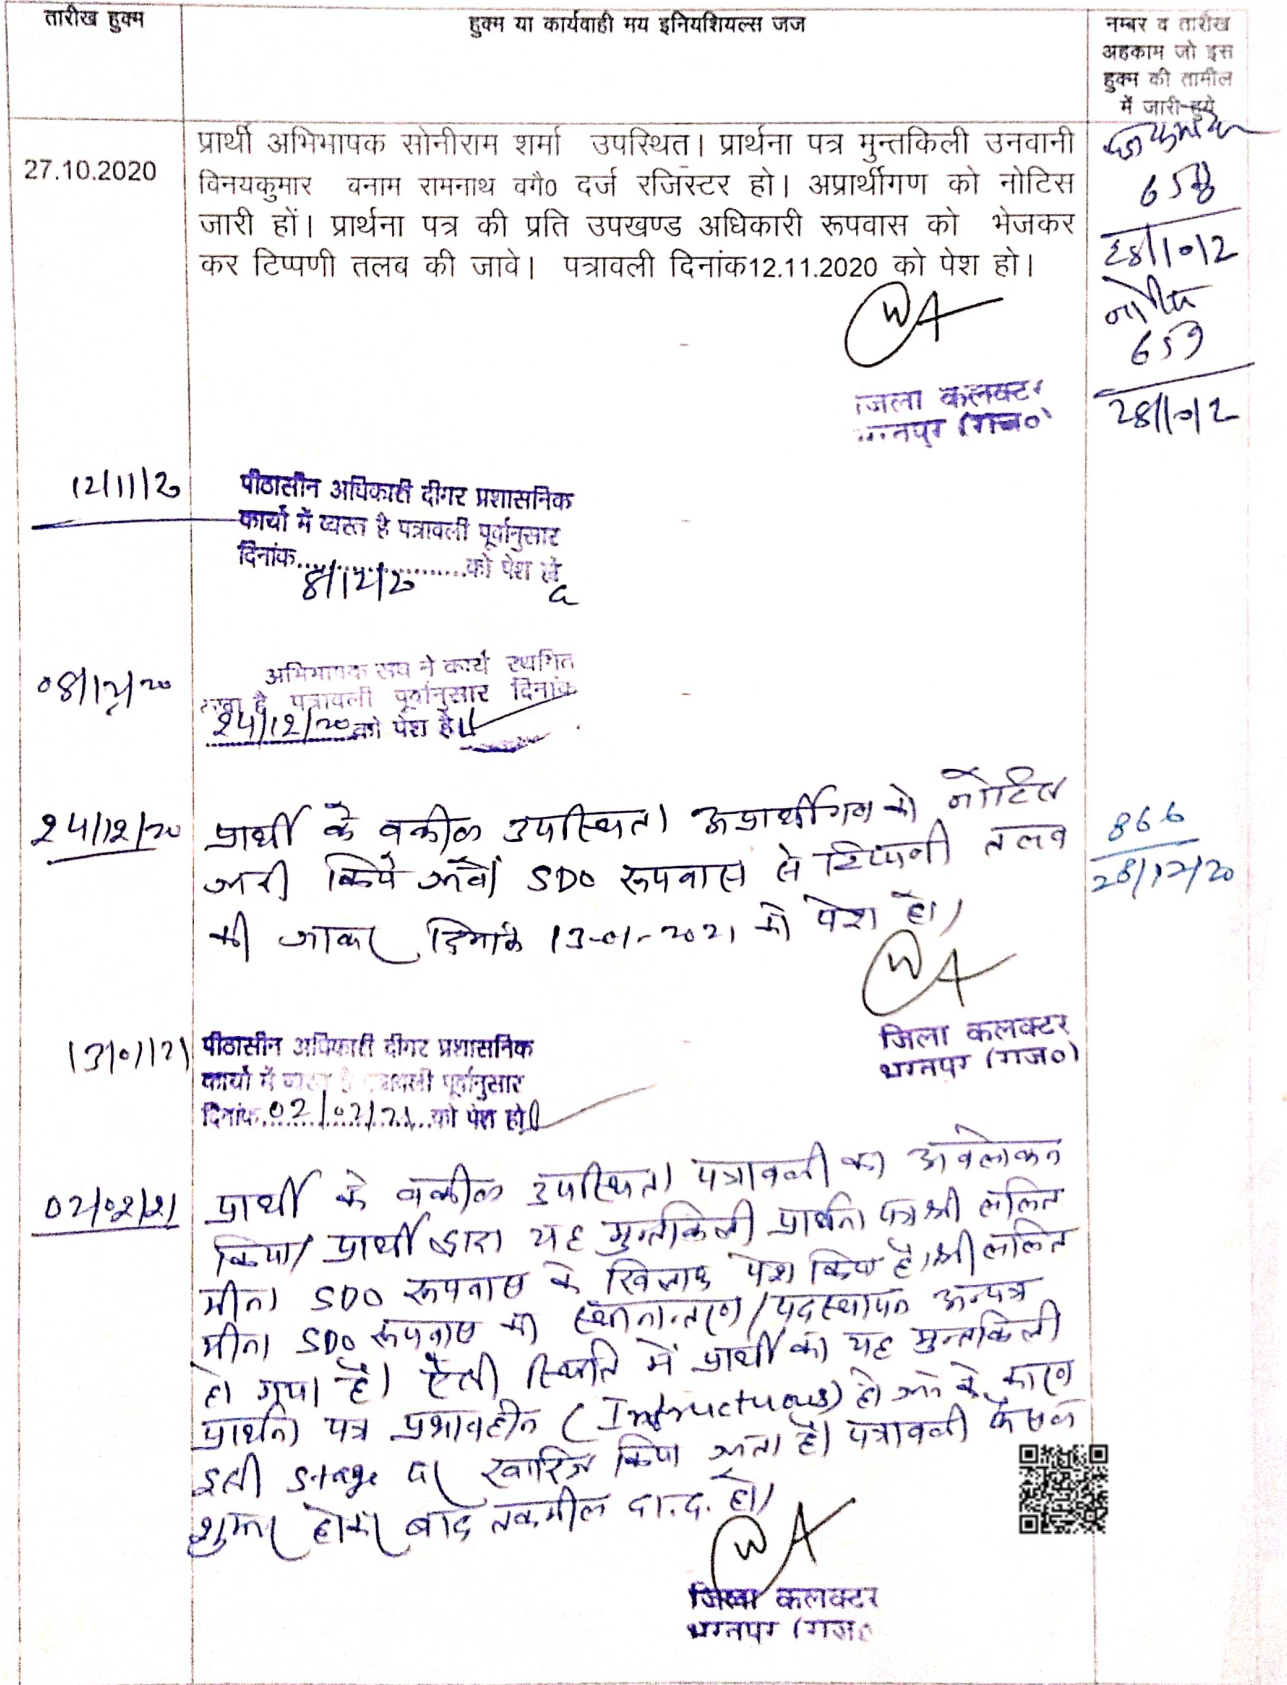 तारीख हुक्म
हुक्म या कार्यवाही मय इनियशियल्स जज
नम्बर व तारीख
अहकाम जो इस
हुक्म की तामील
में जारी हुये
27.10.2020
प्रार्थी अभिभाषक सोनीराम शर्मा उपस्थित। प्रार्थना पत्र मुन्तकिली उनवानी
विनयकुमार बनाम रामनाथ वगै० दर्ज रजिस्टर हो। अप्रार्थीगण को नोटिस
जारी हों। प्रार्थना पत्र की प्रति उपखण्ड अधिकारी रूपवास को भेजकर
कर टिप्पणी तलब की जावे। पत्रावली दिनांक12.11.2020 को पेश हो।
658
28/10/2
नोटिस
659
28/10/2
जिला कलक्टर
भरतपुर (राज०)
12/11/20
पीठासीन अधिकारी दीगर प्रशासनिक
कार्यो में व्यस्त है पत्रावली पूर्वानुसार
दिनांक 8/12/20 को पेश हो
08/12/20
अभिभाषक संघ ने कार्य स्थगित
रखा है पत्रावली पूर्वानुसार दिनांक
24/12/20 को पेश हो
24/12/20
प्रार्थी के वकील उपस्थित। अप्रार्थीगण को नोटिस
जारी किये जावें। SDO रूपवास से टिप्पणी तलब
की जाकर दिनांक 13-01-2021 को पेश हो।
866
28/12/20
जिला कलक्टर
भरतपुर (राज०)
13/01/21
पीठासीन अधिकारी दीगर प्रशासनिक
कार्यो में व्यस्त है पत्रावली पूर्वानुसार
दिनांक 02/02/21 को पेश हो
02/02/21
प्रार्थी के वकील उपस्थित। पत्रावली का अवलोकन
किया। प्रार्थी द्वारा यह मुन्तकिली प्रार्थना पत्र श्री ललित
मीना SDO रूपवास के खिलाफ पेश किया है। श्री ललित
मीना SDO रूपवास का स्थानान्तरण/पदस्थापन अन्यत्र
हो गया है। ऐसी स्थिति में प्रार्थी का यह मुन्तकिली
प्रार्थना पत्र प्रभावहीन (Infructuous) हो जाने के कारण
इसी stage पर खारिज किया जाता है। पत्रावली फैसल
शुमार होकर बाद तकमील दा.द. हो।
जिला कलक्टर
भरतपुर (राज०